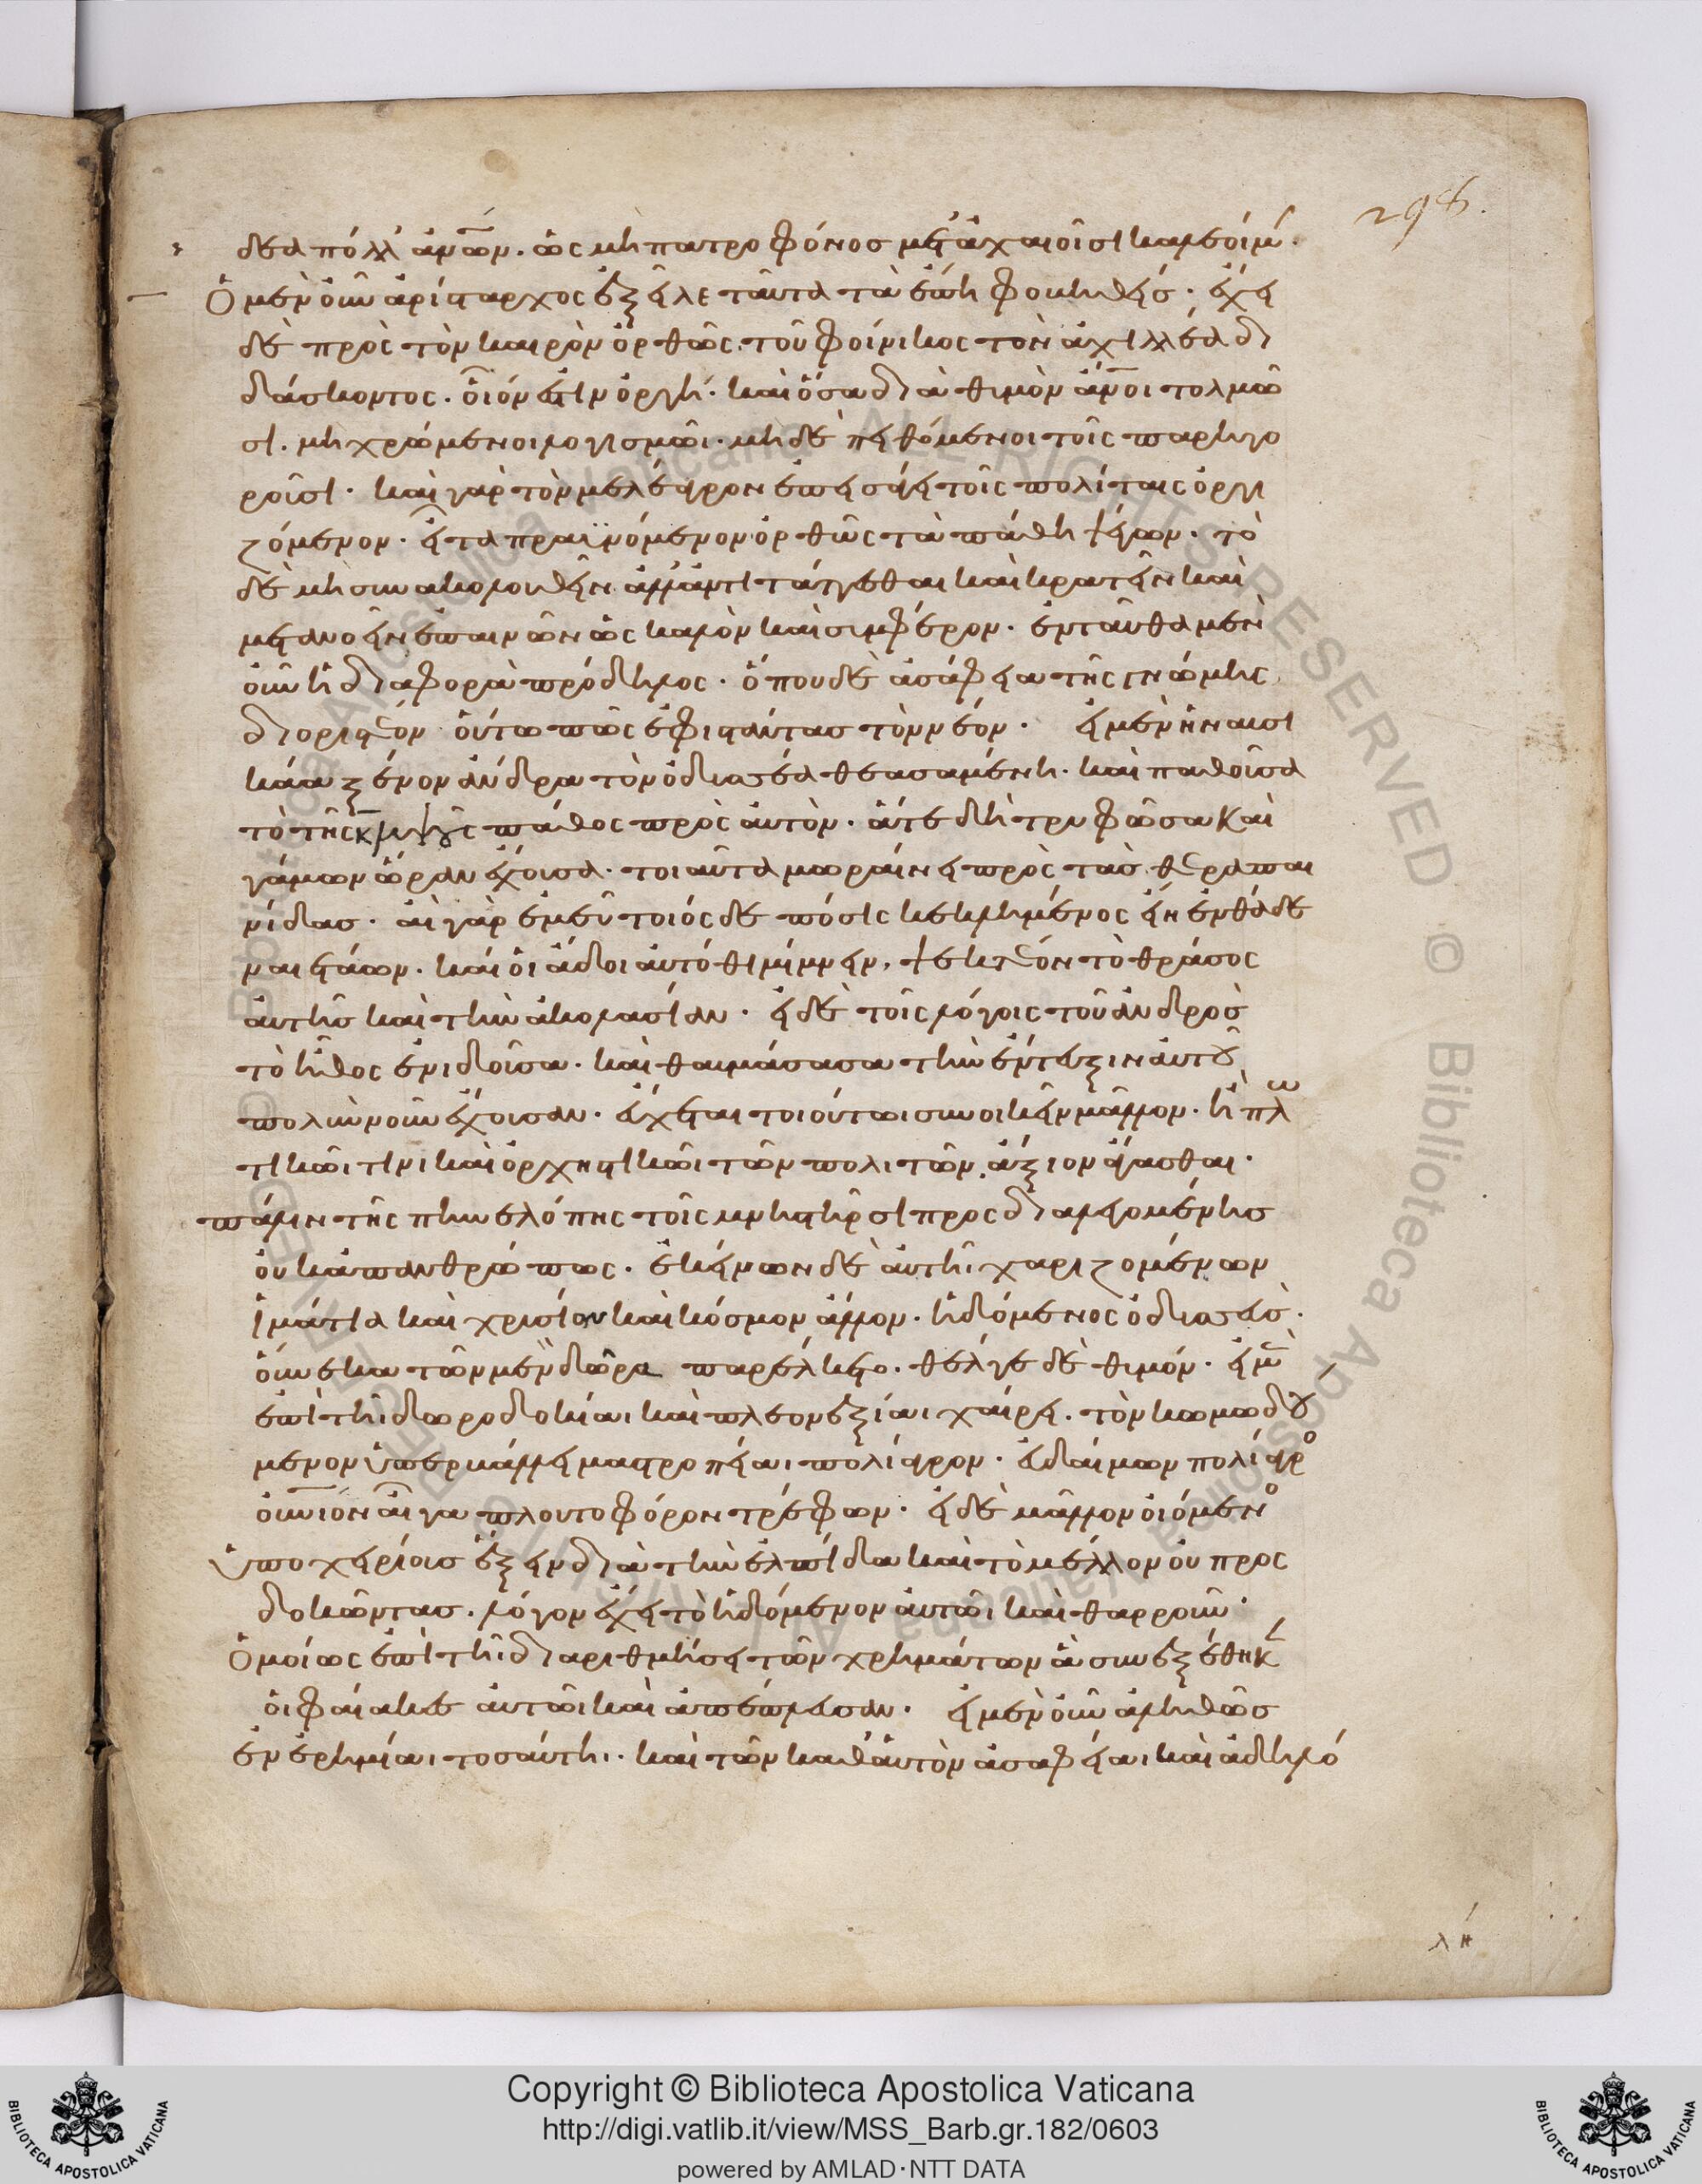 298.
δεα πόλλ' ἀν̅ων. ὡς μὴ πατροφόνος μετ' ἀχαιοῖσι καλεοίμ̅.
Ὁ μὲν οὖν ἀρίσταρχος ἐξεῖλε ταῦτα τὰ ἔπη φοβηθείς. ἔχει
δὲ πρὸς τὸν καιρὸν ὀρθῶς. τοῦ φοίνικος τὸν ἀχιλλέα δι
δάσκοντος. οἷόν ἐστιν ὀργή. καὶ ὅσα διὰ θυμὸν ἄν̅οι τολμῶ
σι. μὴ χρώμενοι λογισμῶι. μηδὲ πειθόμενοι τοῖς παρηγο
ροῦσι. καὶ γὰρ τὸν μελέαγρον ἐπεισάγει τοῖς πολίταις ὀργι
ζόμενον. εἶτα πραϋνόμενον ὀρθῶς τὰ πάθη ψέγων. τὸ
δὲ μὴ συνακολουθεῖν ἀλλ' ἀντιτάττεσθαι καὶ κρατεῖν καὶ
μετανοεῖν ἐπαινῶν ὡς καλὸν καὶ συμφέρον. ἐνταῦθα μὲν
οὖν ἡ διαφορὰ πρόδηλος. ὅπου δὲ ἀσάφεια τῆς γνώμης
διοριστέον οὕτω πῶς ἐφιστάντας τὸν νέον. εἰ μὲν ἡ ναυσι
κάα ξένον ἄνδρα τὸν ὀδυσσέα θεασαμένη. καὶ παθοῦσα
τὸ τῆς καλυψοῦς πάθος πρὸς αὐτὸν. ἅτε δὴ τρυφῶσα καὶ
γάμων ὥραν ἔχουσα. τοιαῦτα μωραίνει πρὸς τὰς θεραπαι
νίδας. αἲ γὰρ ἐμεῦ τοιόσδε πόσις κεκλημένος εἴη ἐνθάδε
ναιετάων. καί οἱ ἅδοι αὐτόθι μίμνειν, ψεκτέον τὸ θράσος
αὐτῆς καὶ τὴν ἀκολασίαν. εἰ δὲ τοῖς λόγοις τοῦ ἀνδρὸς
τὸ ἦθος ἐνιδοῦσα. καὶ θαυμάσασα τὴν ἔντευξιν αὐτοῦ
πολὺν νοῦν ἔχουσαν. εὔχεται τοιούτωι συνοικεῖν μᾶλλον. ἢ πλω
τικῶι τινι καὶ ὀρχηστικῶι τῶν πολιτῶν. ἄξιον ἄγασθαι.
πάλιν τῆς πηνελόπης τοῖς μνηστῆρσι προσδιαλεγομένης
οὐκ ἀπανθρώπως. ἐκείνων δὲ αὐτῆι χαριζομένων
ἱμάτια καὶ χρυσίον καὶ κόσμον ἄλλον. ἡδόμενος ὀδυσσεὺς.
οὕνεκα τῶν μὲν δῶρα παρέλκετο. θέλγε δὲ θυμόν. εἰ μ̅ὲ
ἐπὶ τῆι δωροδοκίαι καὶ πλεονεξίαι χαίρει. τὸν κωμωδού
μενον ὑπερβάλλει μαστροπείαι πολίαγρον. εὐδαίμων πολίαγρο
οὐν̅ιον αἶγα πλουτοφόρον τρέφων. εἰ δὲ μᾶλλον οἰόμενο
ὑποχειρίους ἕξειν διὰ τὴν ἐλπίδα καὶ τὸ μέλλον οὐ προς
δοκῶντας. λόγον ἔχει τὸ ἡδόμενον αὐτῶι καὶ θαρροῦν.
Ὁμοίως ἐπὶ τῆι διαριθμήσει τῶν χρημάτων ἃ συνεξέθηκ̅
οἱ φαίακες αὐτῶι καὶ ἀπέπλευσαν. εἰ μὲν οὖν ἀληθῶς
ἐν ἐρημίαι τοσαύτηι. καὶ τῶν καθ' αὑτὸν ἀσαφείαι καὶ ἀδηλό
λη
Copyright © Biblioteca Apostolica Vaticana
http://digi.vatlib.it/view/MSS_Barb.gr.182/0603
powered by AMLAD·NTT DATA
BIBLIOTECA APOSTOLICA VATICANA
BIBLIOTECA APOSTOLICA VATICANA